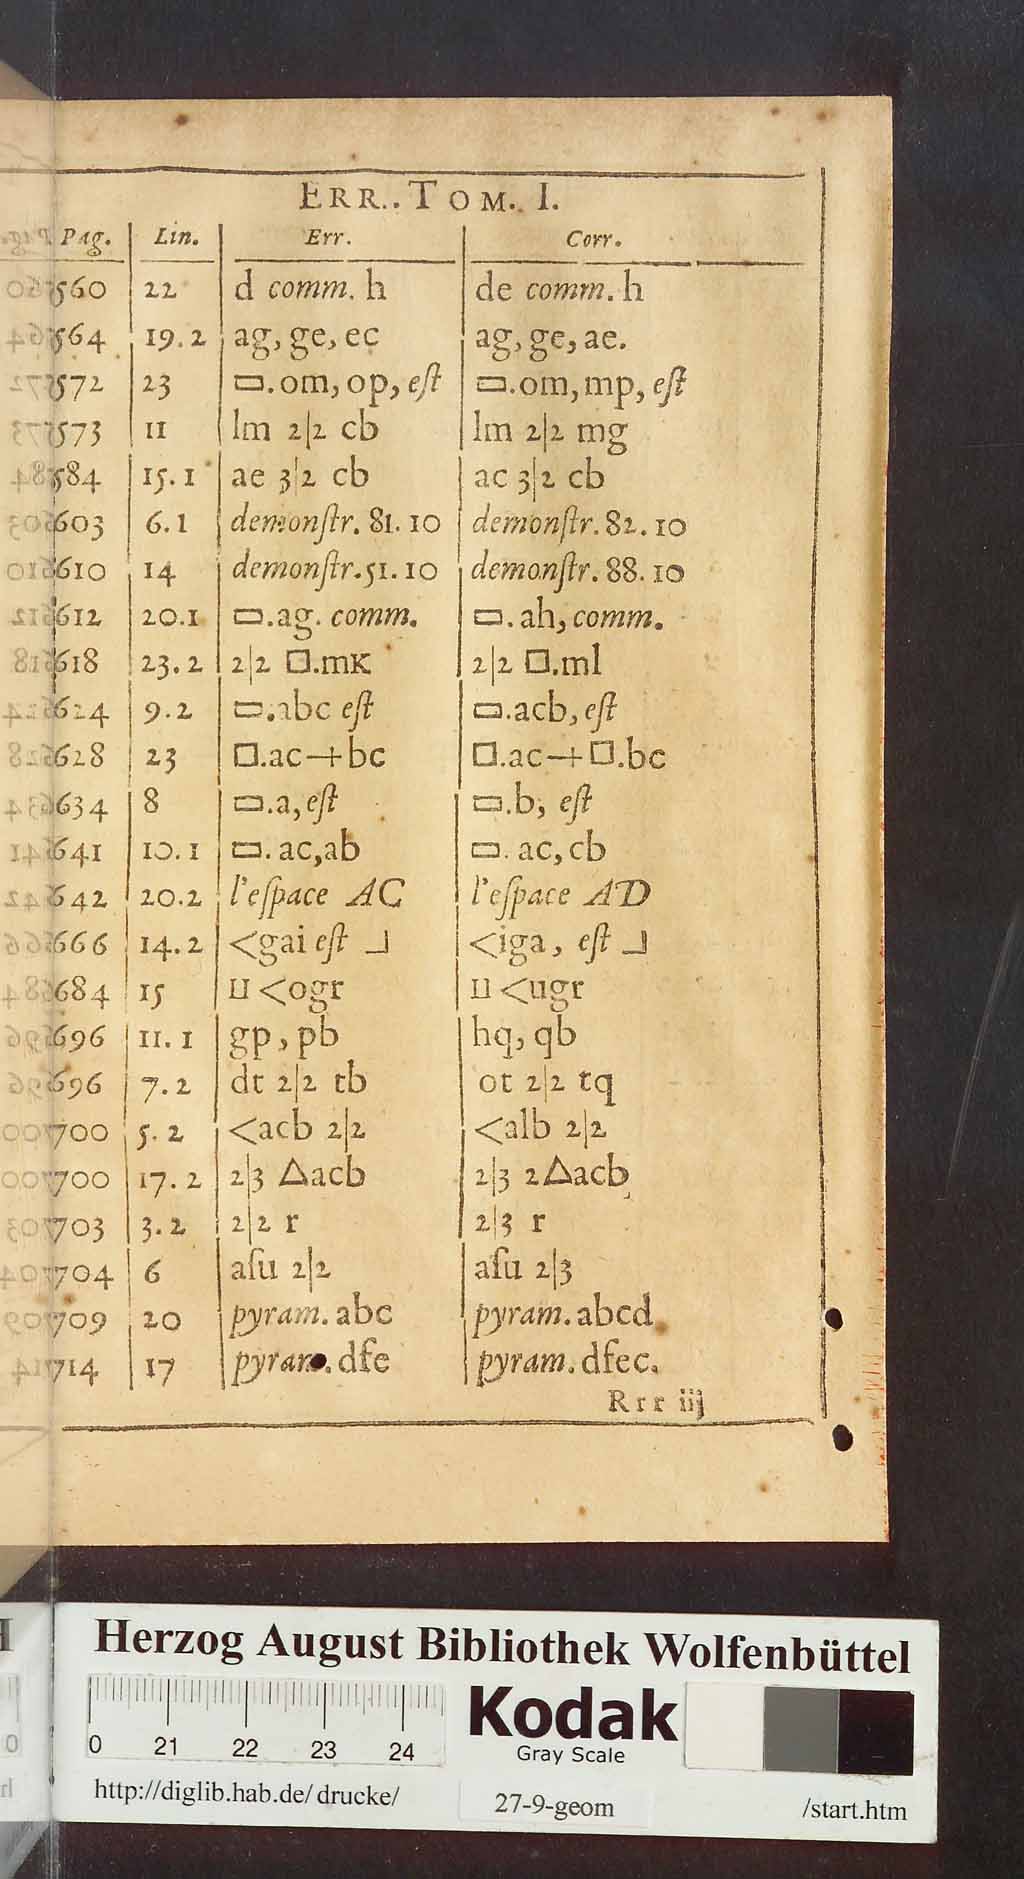 ERR.. TOM. I.
Pag. Lin. Err. Corr.
560 22 d comm. h de comm. h
564 19.2 ag, ge, ec ag, ge, ae.
572 23 ▭.om, op, eſt ▭.om, mp, eſt
573 11 lm 2|2 cb lm 2|2 mg
584 15.1 ae 3|2 cb ac 3|2 cb
603 6.1 demonſtr. 81. 10 demonſtr. 82. 10
610 14 demonſtr. 51. 10 demonſtr. 88. 10
612 20.1 ▭.ag. comm. ▭. ah, comm.
618 23.2 2|2 □.mK 2|2 □.ml
624 9.2 ▭.abc eſt ▭.acb, eſt
628 23 □.ac-+bc □.ac-+□.bc
634 8 ▭.a, eſt ▭.b, eſt
641 10.1 ▭. ac,ab ▭. ac, cb
642 20.2 l'eſpace AC l'eſpace AD
666 14.2 <gai eſt ⅃ <iga, eſt ⅃
684 15 <ogr <ugr
696 11.1 gp, pb hq, qb
696 7.2 dt 2|2 tb ot 2|2 tq
700 5.2 <acb 2|2 <alb 2|2
700 17.2 2|3 △acb 2|3 2△acb
703 3.2 2|2 r 2|3 r
704 6 aſu 2|2 aſu 2|3
709 20 pyram. abc pyram. abcd
714 17 pyram. dfe pyram. dfec.
Rrr iij
Herzog August Bibliothek Wolfenbüttel
0 21 22 23 24
Kodak
Gray Scale
http://diglib.hab.de/drucke/ 27-9-geom /start.htm